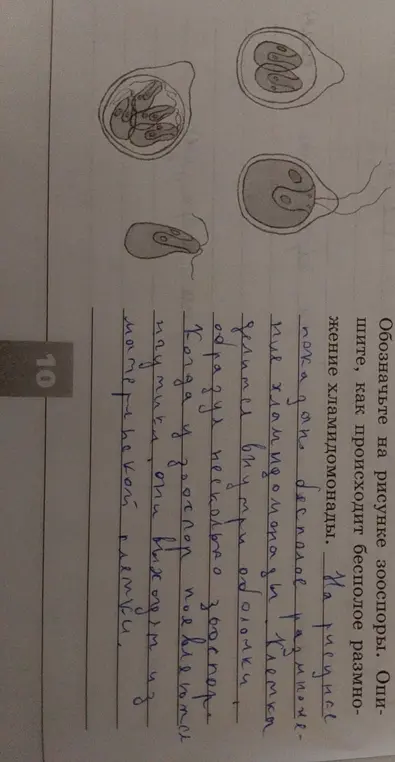 Обозначьте на рисунке зооспоры. Опи-
шите, как происходит бесполое размно-
жение хламидомонады. На рисунке
показано бесполое размноже-
ние хламидомонады. Клетка
делится внутри оболочки,
образуя несколько зооспор.
Когда у зооспор появляются
жгутики, они выходят из
материнской клетки.
10